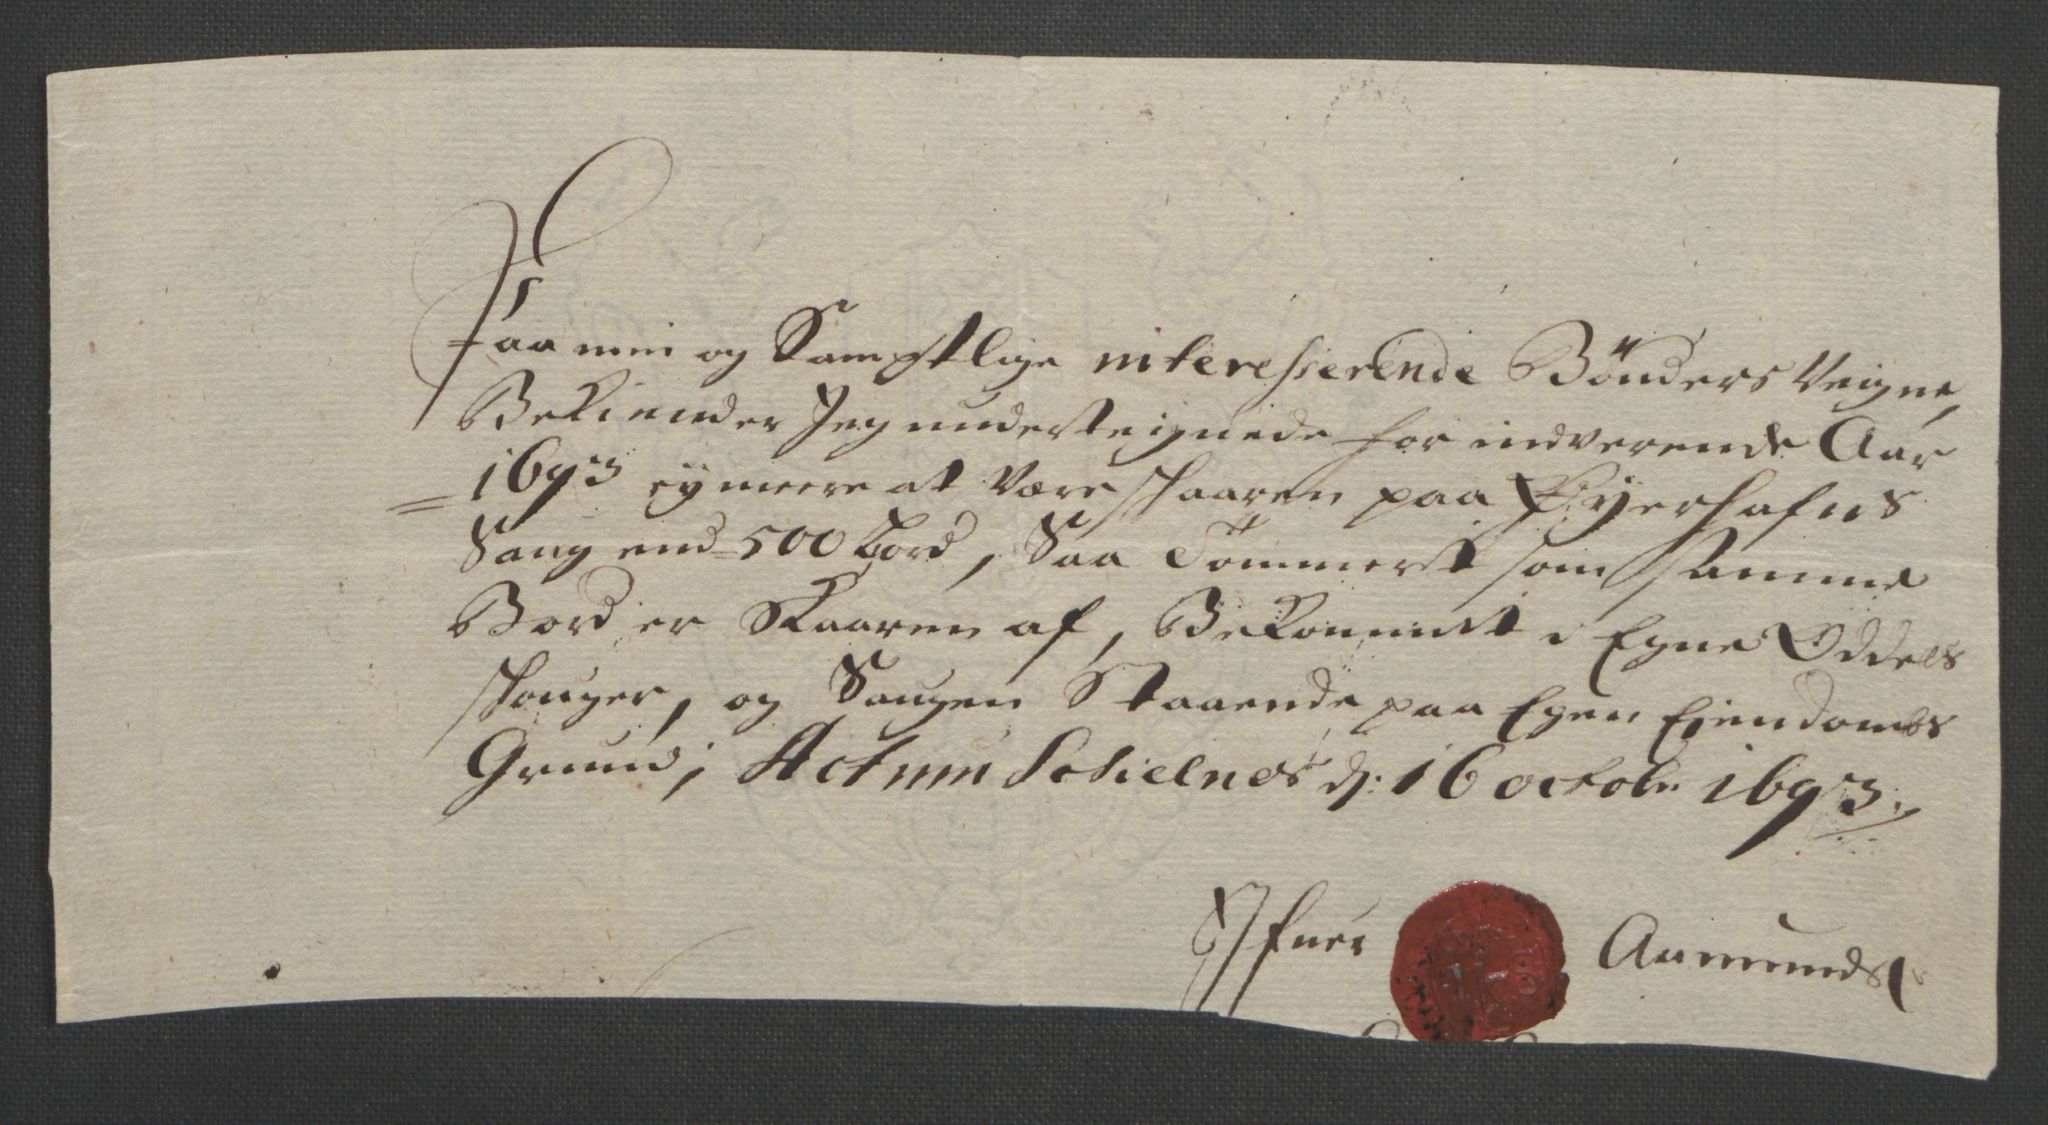 Paa min og Samptlige interesserende Bønders Veigne,
Bekiender Jeg underteignede for indverende Aar
1693 ey meere at være skaaren paa Fyershafns
Saug end 500 bord, Saa Tømmerit som samme
Bord er Skaaren af, Bekommit i Egne Oddels
skouger, og Saugen Staaende paa Egen Eiendombs
Grund; Actum Schielnes d: 16 octobr: 1693.
Aamunds